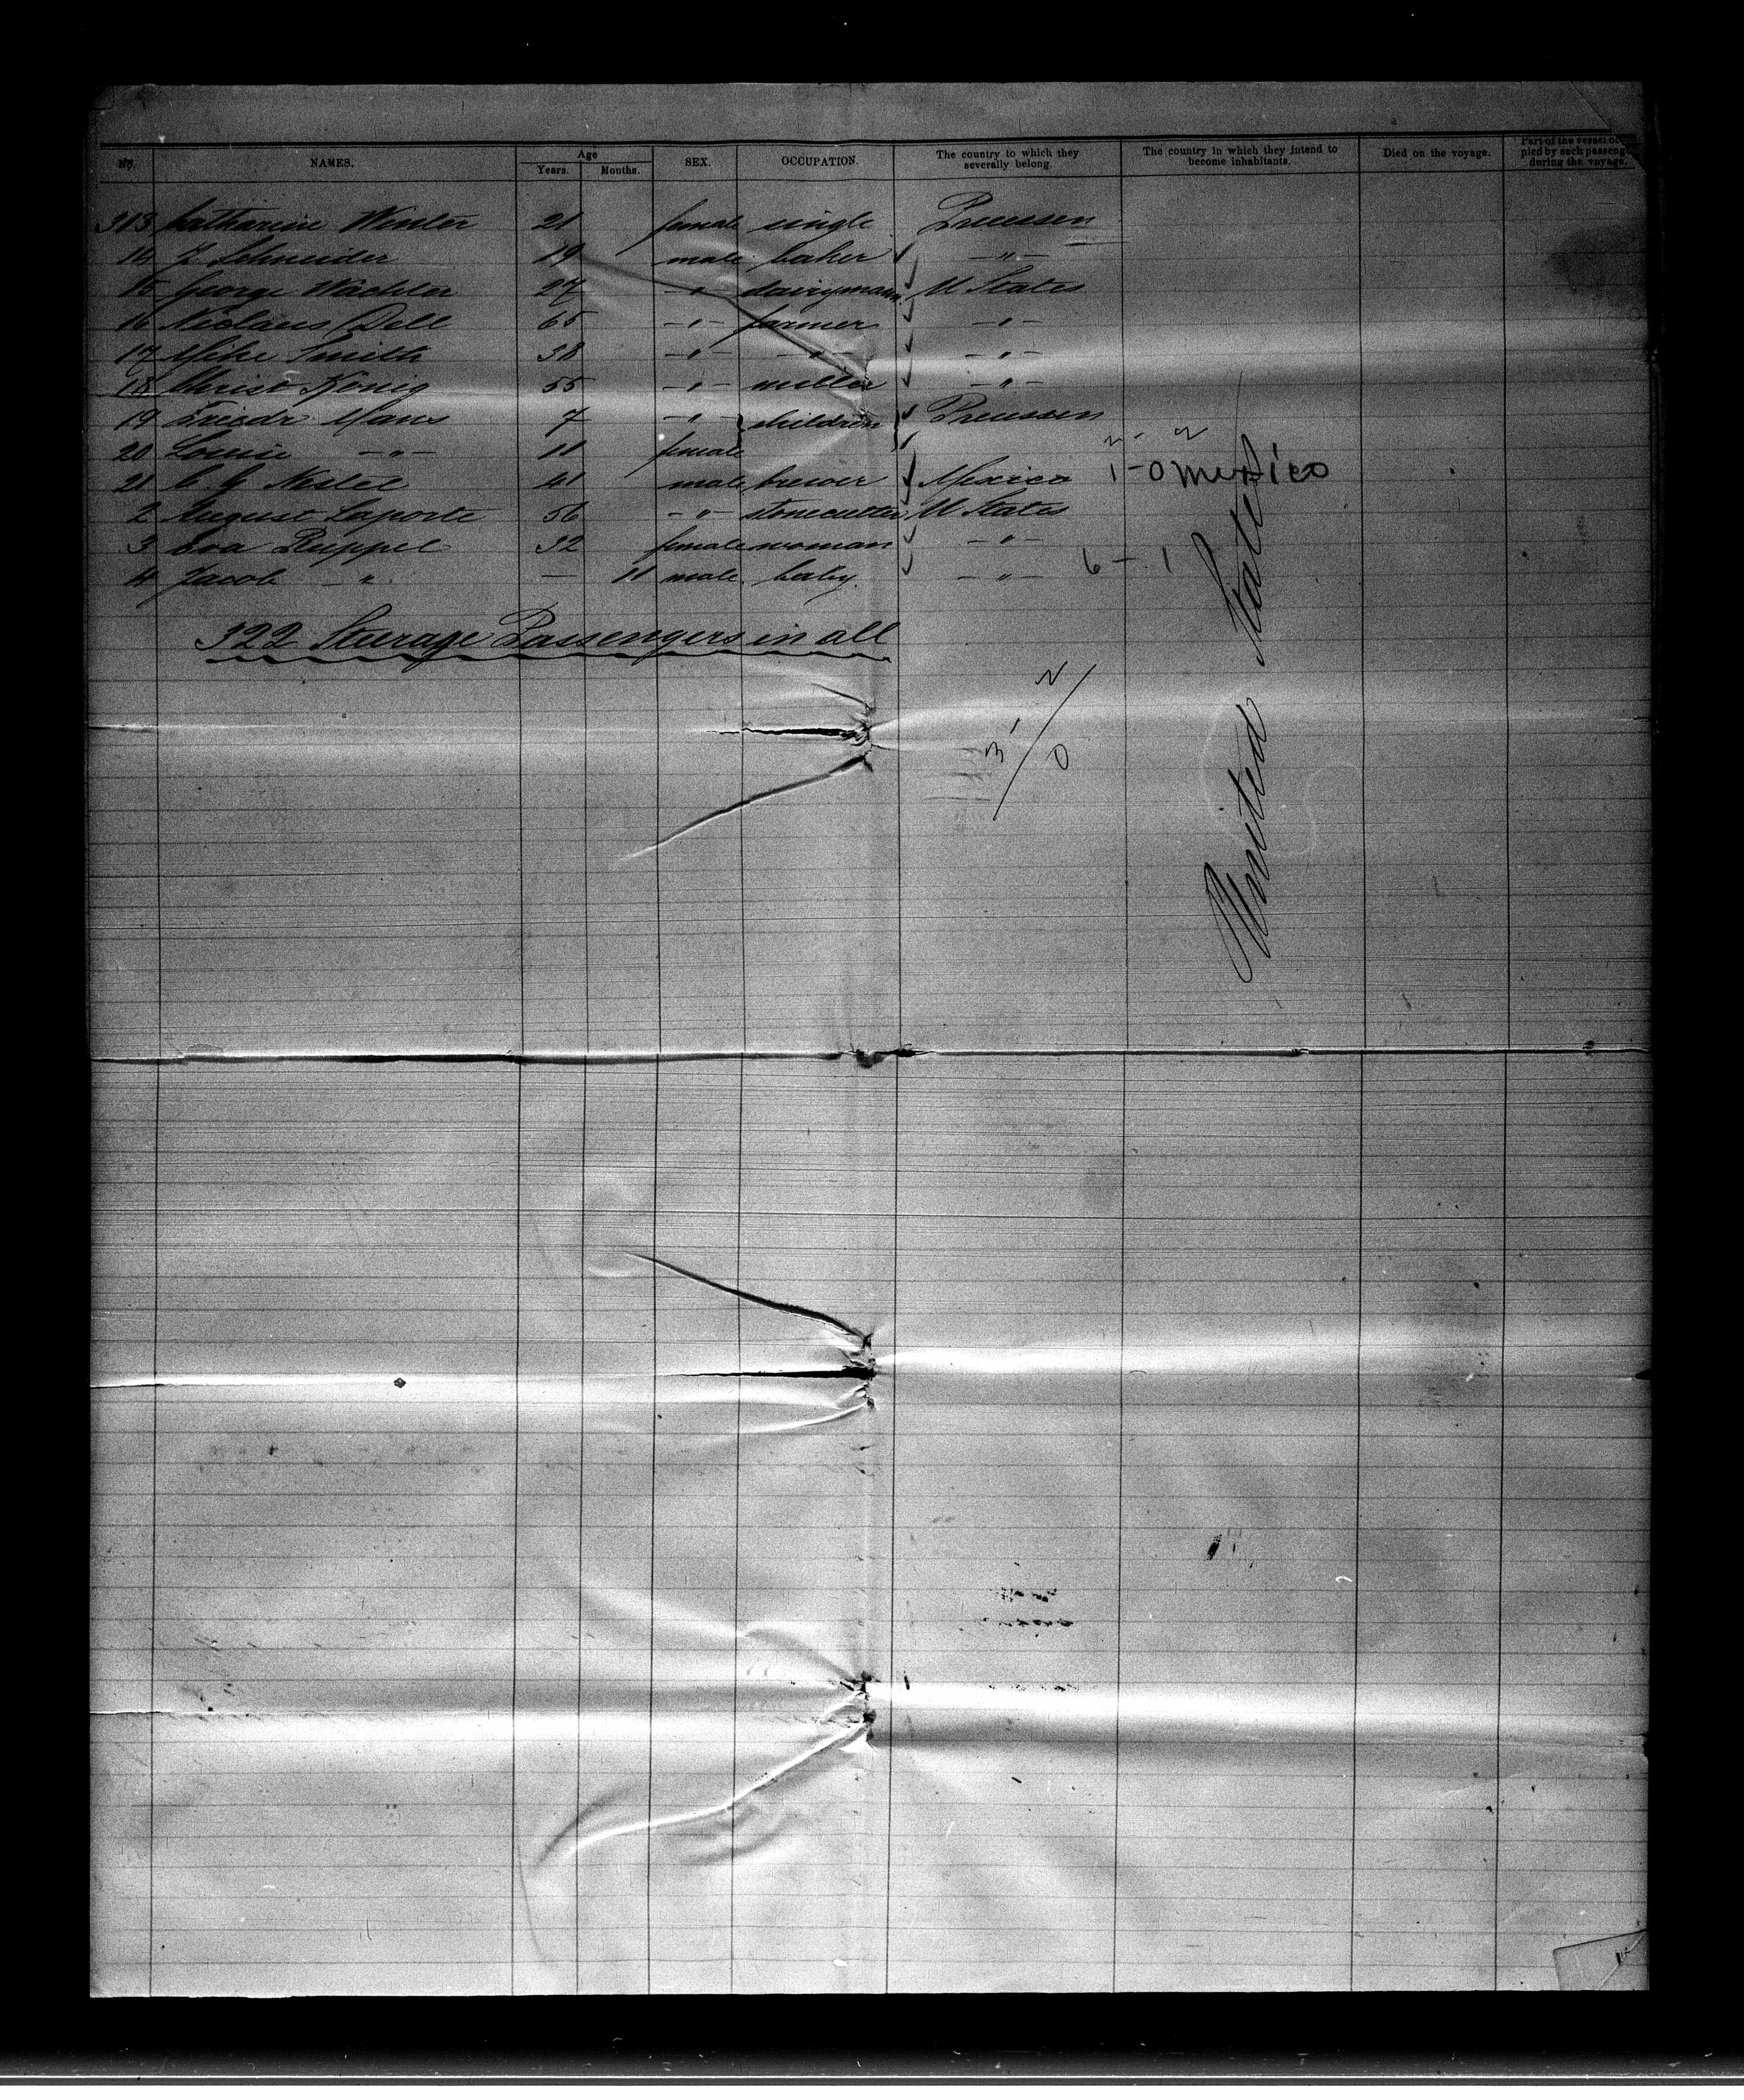 No. NAMES. Age Years. Months. SEX. OCCUPATION. The country to which they severally belong. The country in which they intend to become inhabitants. Died on the voyage. Part of the vessel occupied by each passenger during the voyage.
313 Katharine Winter 21 female single Preussen
14 J Schneider 19 male baker - " -
15 George Wächter 27 - " - dairyman M States
16 Niclaus Dell 65 - " - farmer - " -
17 Mike Smith 38 - " - - " - - " -
18 Christ König 55 - " - miller - " -
19 Friedr Mans 7 - " - children Preussen
20 Louise - " - 11 female
21 C. J Nestel 41 male brewer Mexico 1-0 mexico
2 August Laporte 56 - " - stonecutter U States
3 Eva Ruppel 32 female woman - " -
4 Jacob - " - — 11 male baby - " - 6-1
322 Steerage Passengers in all
3 - 2 / 0
United States